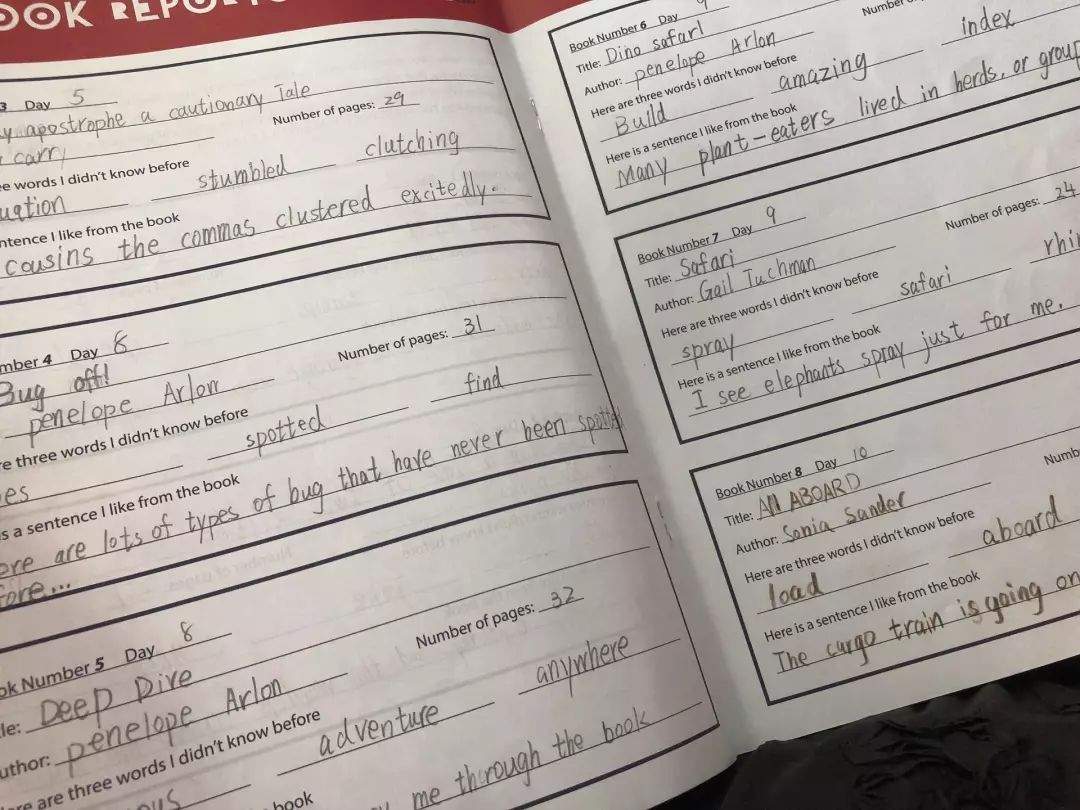 OOK REPORT
3 Day 5
y apostrophe a cautionary Tale
carry
Number of pages: 29
ee words I didn't know before
uation stumbled clutching
ntence I like from the book
cousins the commas clustered excitedly.
mber 4 Day 8
Bug off!
penelope Arlon
Number of pages: 31
re three words I didn't know before
es spotted find
is a sentence I like from the book
ere are lots of types of bug that have never been spotted
fore...
ok Number 5 Day 8
le: Deep Dive
uthor: penelope Arlon
Number of pages: 32
ere are three words I didn't know before
ous adventure anywhere
book
me thorough the book
Book Number 6 Day 9
Title: Dino safari
Author: penelope Arlon
Number
Here are three words I didn't know before
Build amazing index
Here is a sentence I like from the book
Many plant-eaters lived in herds, or group
Book Number 7 Day 9
Title: Safari
Author: Gail Tuchman
Number of pages: 24
Here are three words I didn't know before
spray safari rhi
Here is a sentence I like from the book
I see elephants spray just for me.
Book Number 8 Day 10
Title: All ABOARD
Author: Sonia Sander
Numb
Here are three words I didn't know before
load aboard
Here is a sentence I like from the book
The cargo train is going on